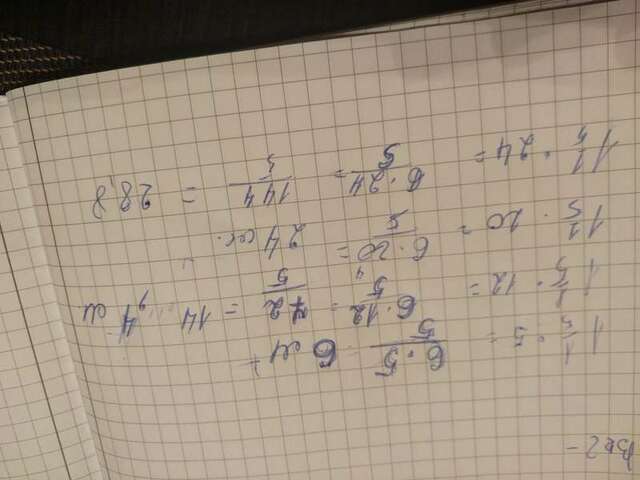 1 1/5 · 5 = 6·5/5 = 6 см
1 1/5 · 12 = 6·12/5 = 72/5 = 14,4 см
1 1/5 · 20 = 6·20/5 = 24 см.
1 1/5 · 24 = 6·24/5 = 144/5 = 28,8